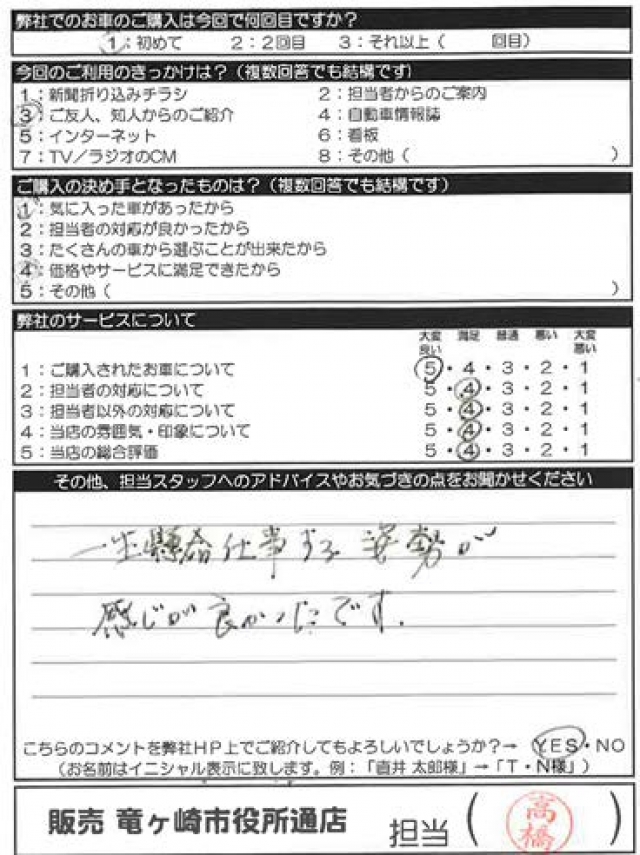 弊社でのお車のご購入は今回で何回目ですか？
1：初めて 2：2回目 3：それ以上（ 回目）
今回のご利用のきっかけは？（複数回答でも結構です）
1：新聞折り込みチラシ 2：担当者からのご案内
3：ご友人、知人からのご紹介 4：自動車情報誌
5：インターネット 6：看板
7：TV／ラジオのCM 8：その他（ ）
ご購入の決め手となったものは？（複数回答でも結構です）
1：気に入った車があったから
2：担当者の対応が良かったから
3：たくさんの車から選ぶことが出来たから
4：価格やサービスに満足できたから
5：その他（ ）
弊社のサービスについて
大変良い 満足 普通 悪い 大変悪い
1：ご購入されたお車について 5・4・3・2・1
2：担当者の対応について 5・4・3・2・1
3：担当者以外の対応について 5・4・3・2・1
4：当店の雰囲気・印象について 5・4・3・2・1
5：当店の総合評価 5・4・3・2・1
その他、担当スタッフへのアドバイスやお気づきの点をお聞かせください
一生懸命仕事する姿勢が
感じが良かったです.
こちらのコメントを弊社HP上でご紹介してもよろしいでしょうか？→ YES・NO
（お名前はイニシャル表示に致します。例：「直井 太郎様」→「T・N様」）
販売 竜ヶ崎市役所通店 担当（高橋）